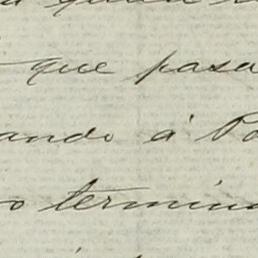 que pasa
ando á Po
o termina